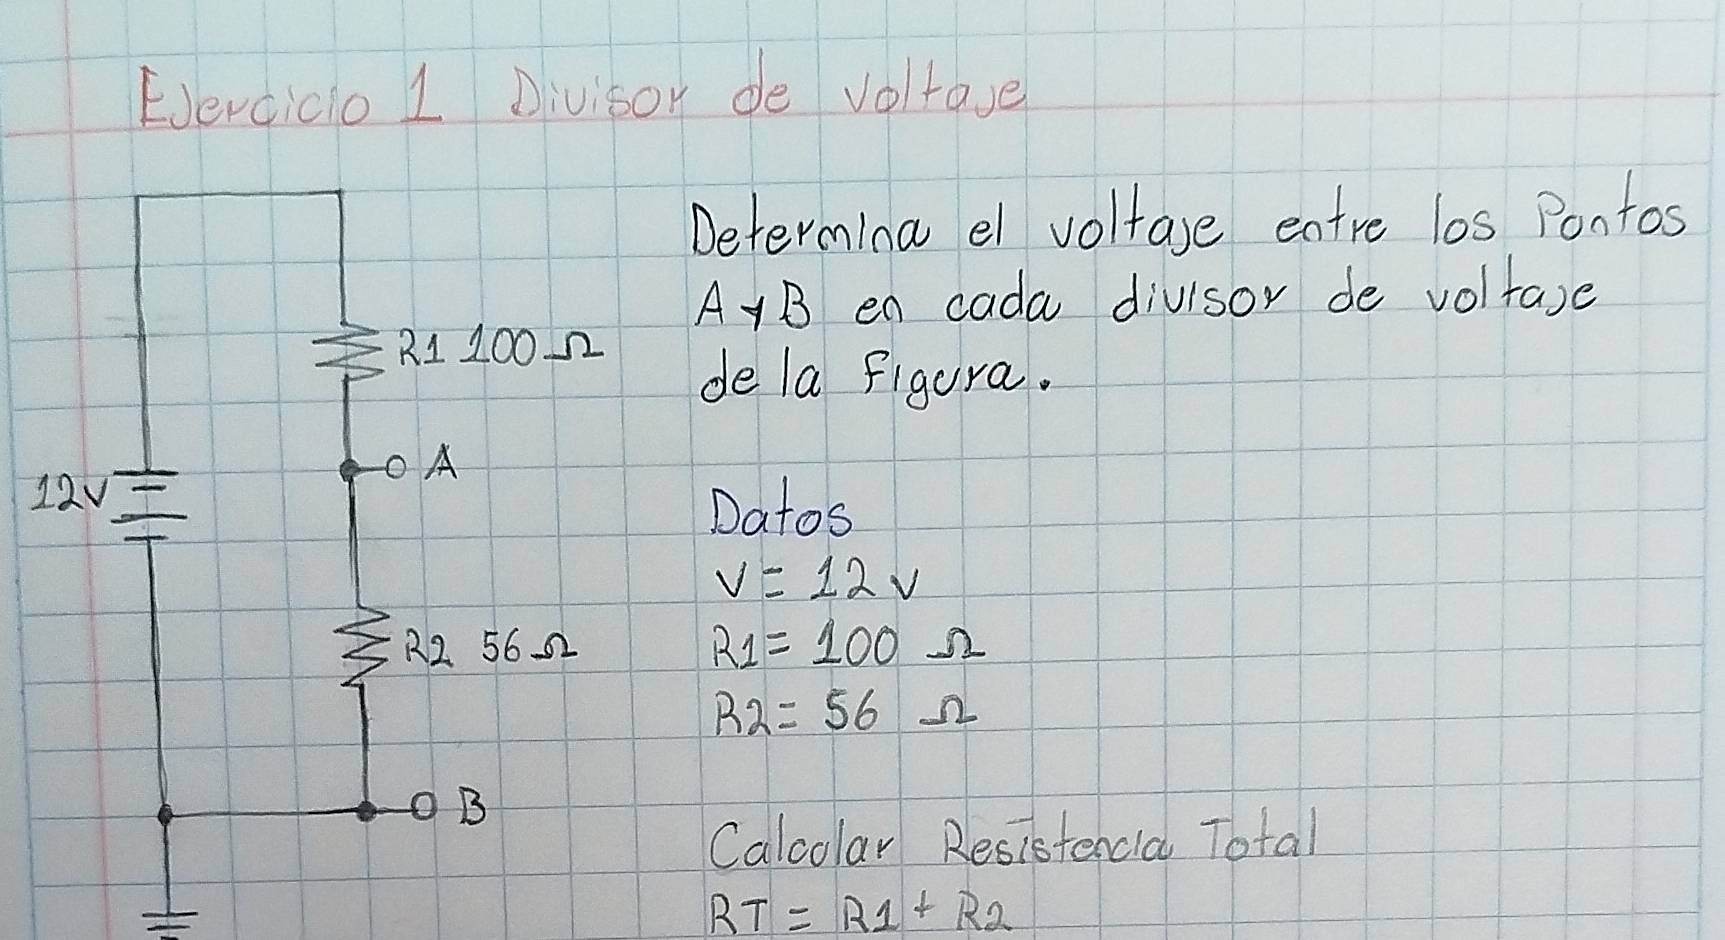 Ejercicio 1 Divisor de Voltaje
Determina el voltaje entre los Puntos
A y B en cada divisor de voltaje
de la Figura.
R1 100 Ω
A
12V
R2 56 Ω
B
Datos
V = 12 V
R1 = 100 Ω
R2 = 56 Ω
Calcular Resistencia Total
RT = R1 + R2